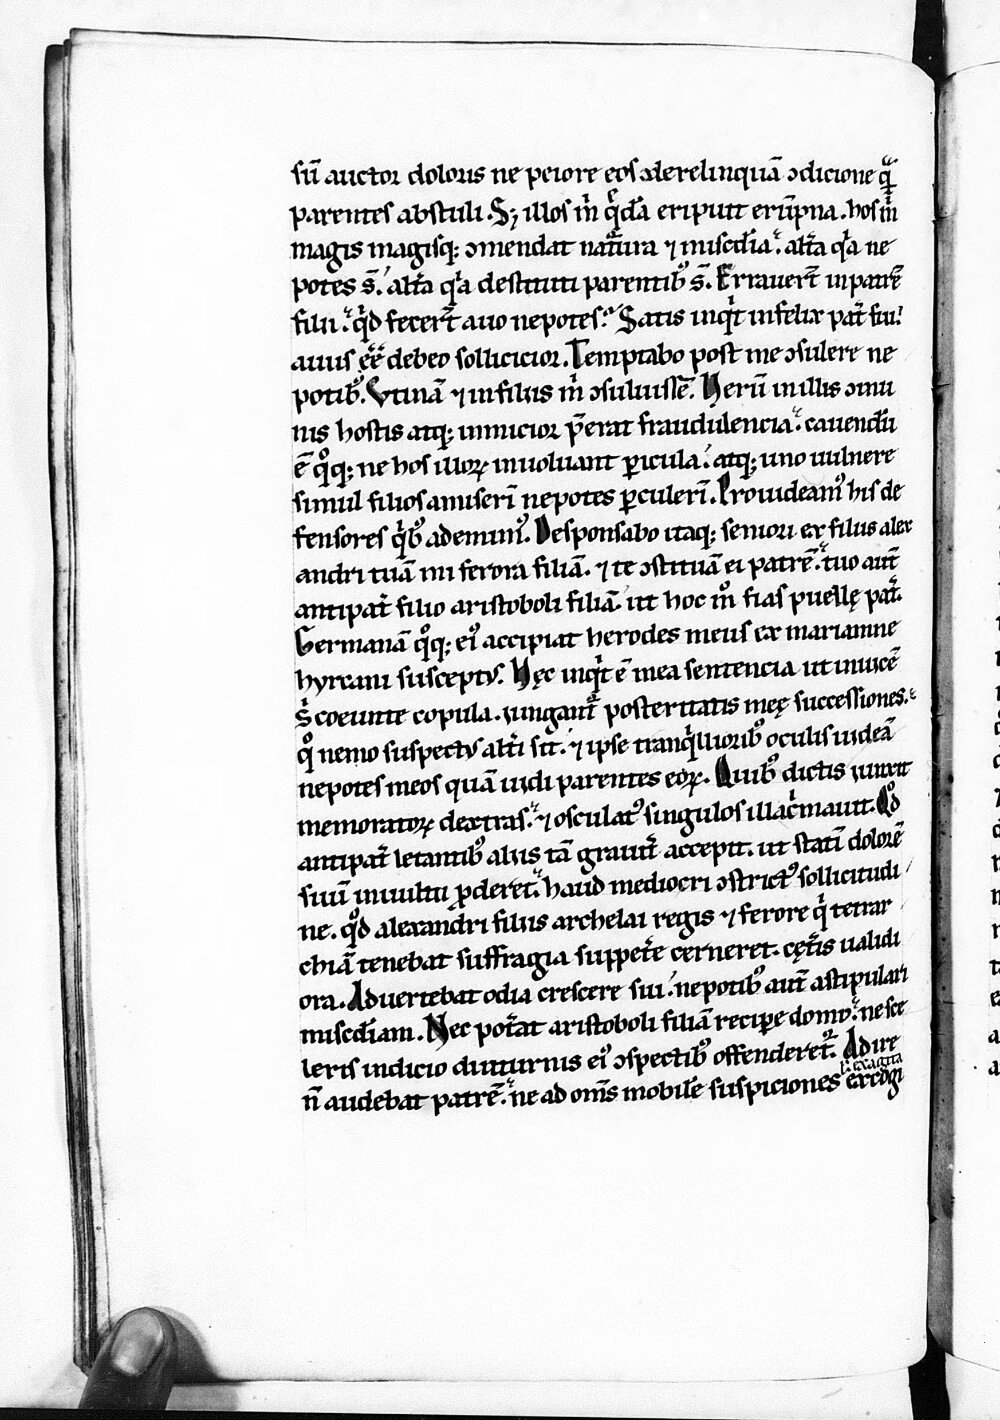 sū auctor doloris ne peiore eos ↄderelinquā ↄdicione qͣ̄
parentes abstuli. Sꝫ illos m̄ qͥdā eripuit erūpna. hos m̄
magis magisqꝫ ↄmendat natura ⁊ misc̄dia. altͣa qͣa ne
potes s̄. altͣa qͣa destituti parentibꝰ s̄. Erraverт̄ in patrē
filii. qͥd fecerт̄ auo nepotes. Satis inqͥt infelix pat̄ fui.
auus eē debeo sollicicior. Temptabo post me ↄsulere ne
potibꝰ. Utinā ⁊ in filiis m̄ ↄsuluissē. Herū in illis ↄmu
nis hostis atqꝫ inimicior p̄erat fraudulencia. cauendū
ē qͦqꝫ ne hos illoꝝ inuoluant ꝑicula. atqꝫ uno uulnere
simul filios amiserī nepotes ꝑculerī. Prouideamꝰ his de
fensores qͥbꝰ ademimꝰ. Desponsabo itaqꝫ seniori ex filiis alex
andri tuā mi ferora filiā. ⁊ te ↄstituā ei patrē. tuo aut̄
antipat̄ filio aristoboli filiā. ut hoc m̊ fias puellę pat̄.
Germanā qͦqꝫ eiꝰ accipiat herodes meus ex mariamne
hyrcani susceptꝰ. Hęc inqͥt ē mea sentencia ut inuicē
s̄ coeunte copula. iungant᷑ posteritatis meę successiones.
qͦ nemo suspectꝰ alt̄i sit. ⁊ ipse tranqͥllioribꝰ oculis uideā
nepotes meos quā uidi parentes eoꝝ. Quibꝰ dictis iunxit
memoratoꝝ dextras. ⁊ osculatꝰ singulos illacͥmauit. Qͦd
antipat̄ letantibꝰ aliis tā grauit̄ accepit. ut statī dolorē
suū in uultu ꝓderet. haud mediocri ↄstrictꝰ sollicitudi
ne. qͦd alexandri filiis archelai regis ⁊ ferore qͥ tetrar
chiā tenebat suffragia suppet̄e cerneret. cęt̄is ualidi
ora. Aduertebat odia crescere sui. nepotibꝰ aut̄ astipulari
misc̄diam. Nec pot̄at aristoboli filiā recipe domū. ne sce
leris indicio diuturnis eiꝰ ↄspectibꝰ offenderet᷑. Adire
n̄ audebat patrē. ne ad om̄s mobilē suspiciones excōgi
ł exagita